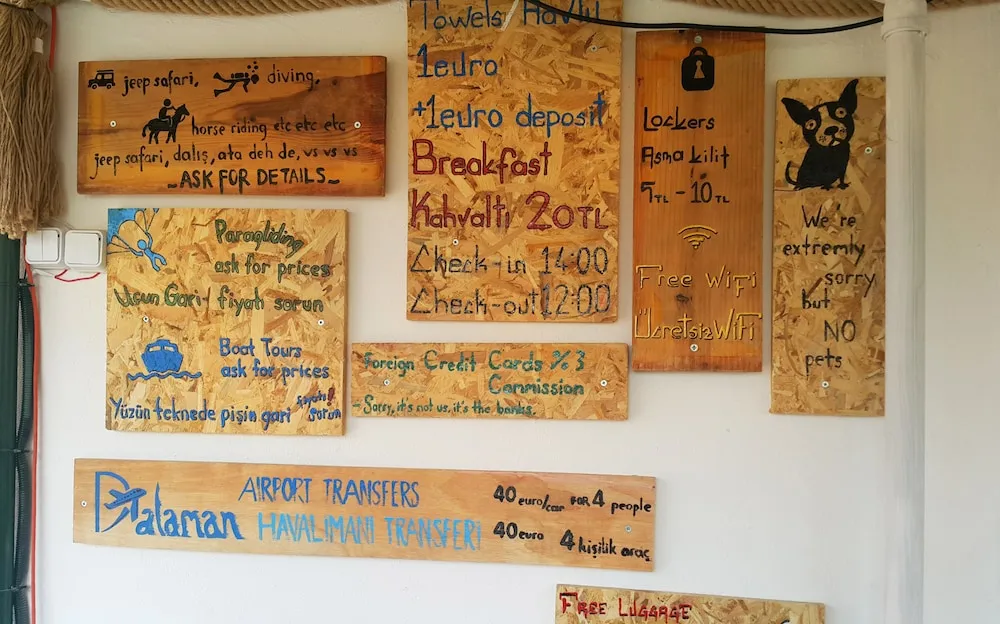 jeep safari, diving,
horse riding etc etc etc
jeep safari, dalış, ata deh de, vs vs vs
-ASK FOR DETAILS-
Paragliding
ask for prices
Uçun Gari-! fiyatı sorun
Boat Tours
ask for prices
Yüzün teknede pişin gari fiyatı! sorun
Towels Havlu
1euro
+1euro deposit
Breakfast
Kahvaltı 20TL
Check-in 14:00
Check-out 12:00
Foreign Credit Cards %3
Commission
- Sorry, it's not us, it's the banks.
Lockers
Asma kilit
5TL - 10TL
Free WiFi
Ücretsiz WiFi
We're
extremly
sorry
but
NO
pets
Dalaman
AIRPORT TRANSFERS
HAVALIMANI TRANSFERİ
40 euro/car FOR 4 people
40 euro 4 kişilik araç
FREE LUGGAGE